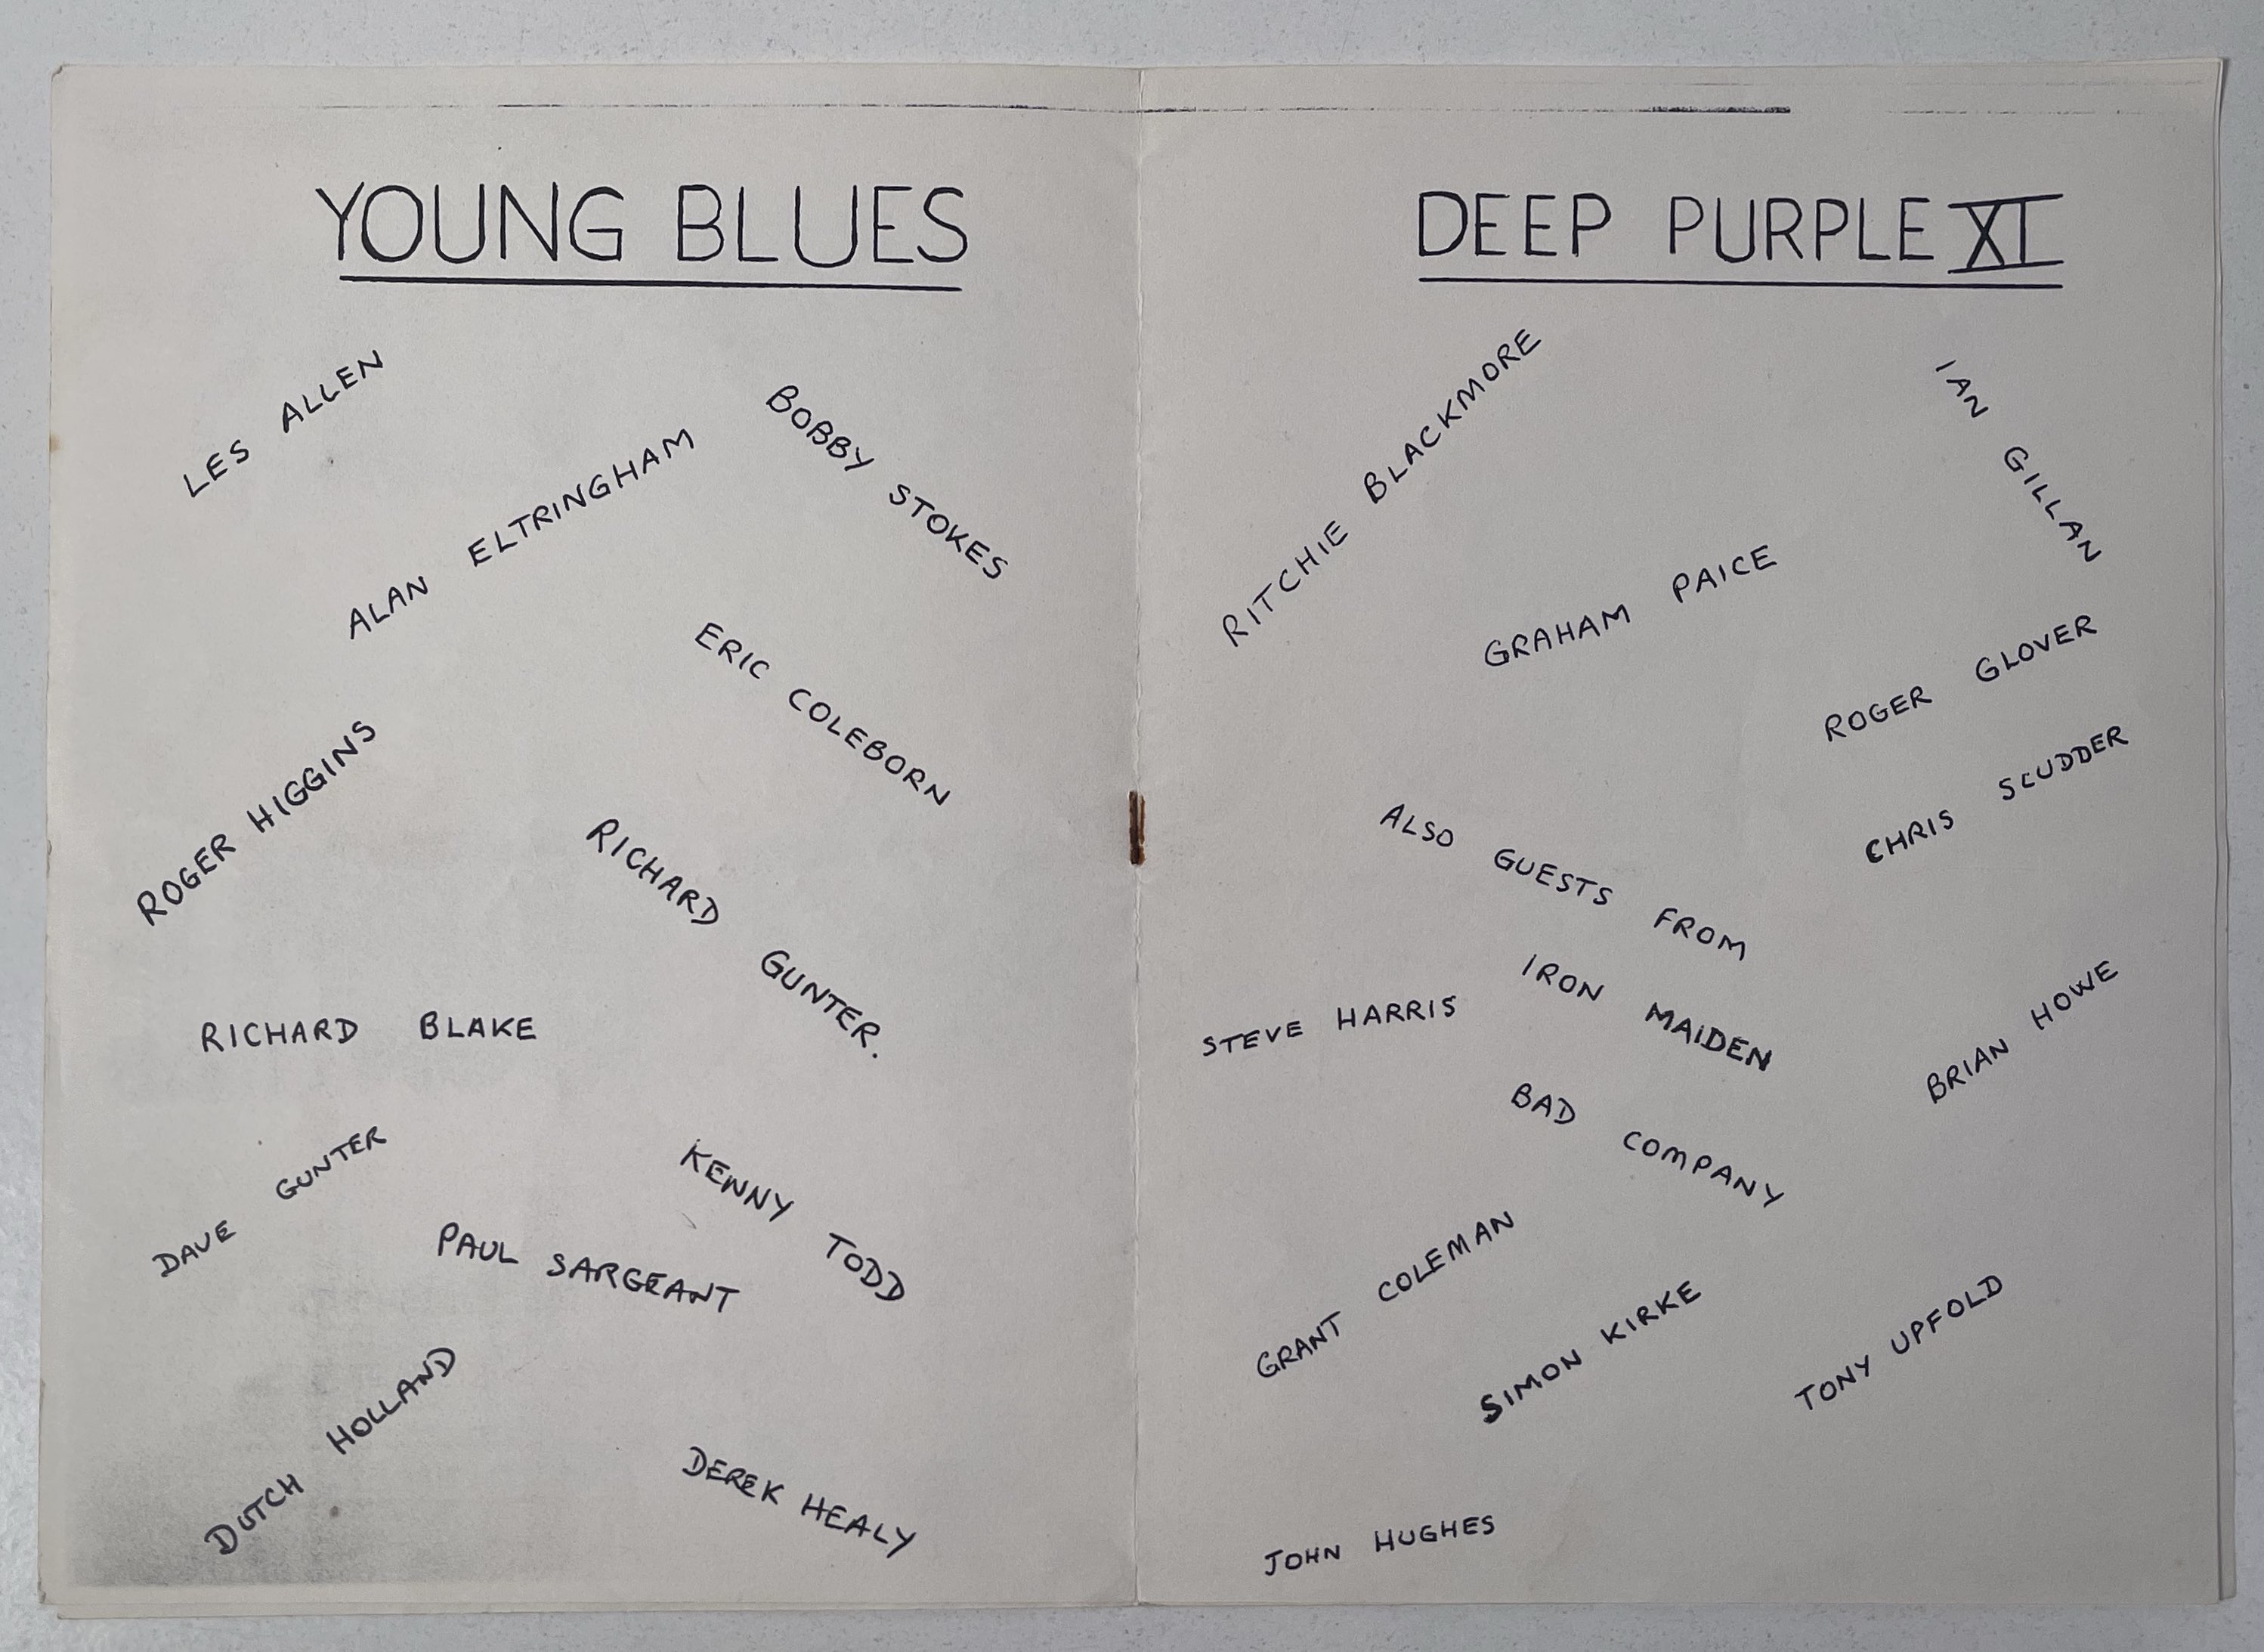 YOUNG BLUES
LES ALLEN
BOBBY STOKES
ALAN ELTRINGHAM
ERIC COLEBORN
ROGER HIGGINS
RICHARD GUNTER.
RICHARD BLAKE
DAVE GUNTER
KENNY TODD
PAUL SARGEANT
DUTCH HOLLAND
DEREK HEALY
DEEP PURPLE XI
RITCHIE BLACKMORE
IAN GILLAN
GRAHAM PAICE
ROGER GLOVER
CHRIS SCUDDER
ALSO GUESTS FROM
IRON MAIDEN
STEVE HARRIS
BRIAN HOWE
BAD COMPANY
GRANT COLEMAN
SIMON KIRKE
TONY UPFOLD
JOHN HUGHES